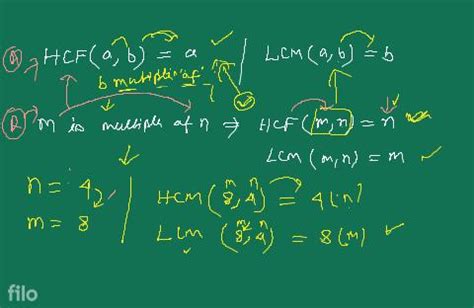 (A) HCF(a, b) = a ✓ / LCM(a, b) = b
b multiple of
(R) m is multiple of n ⇒ HCF(m, n) = n
LCM (m, n) = m ✓
n = 4
m = 8
HCM(8, 4) = 4(n)
LCM (8, 4) = 8(m) ✓
m n
m n
filo